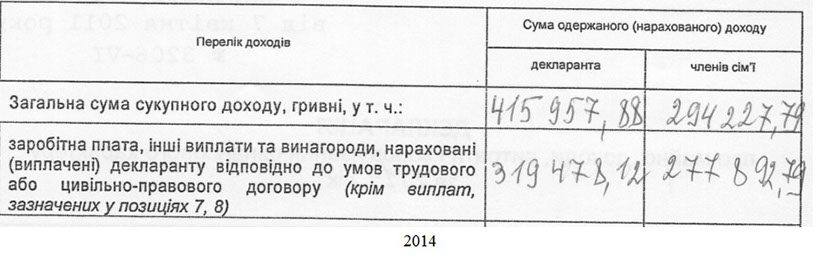 від 7 квітня 2011 року
№ 3206-VI
Перелік доходів
Сума одержаного (нарахованого) доходу
декларанта
членів сім'ї
Загальна сума сукупного доходу, гривні, у т. ч.:
415 957, 88
294 227, 79
заробітна плата, інші виплати та винагороди, нараховані
(виплачені) декларанту відповідно до умов трудового
або цивільно-правового договору (крім виплат,
зазначених у позиціях 7, 8)
319 478, 12
277 892, 79
2014